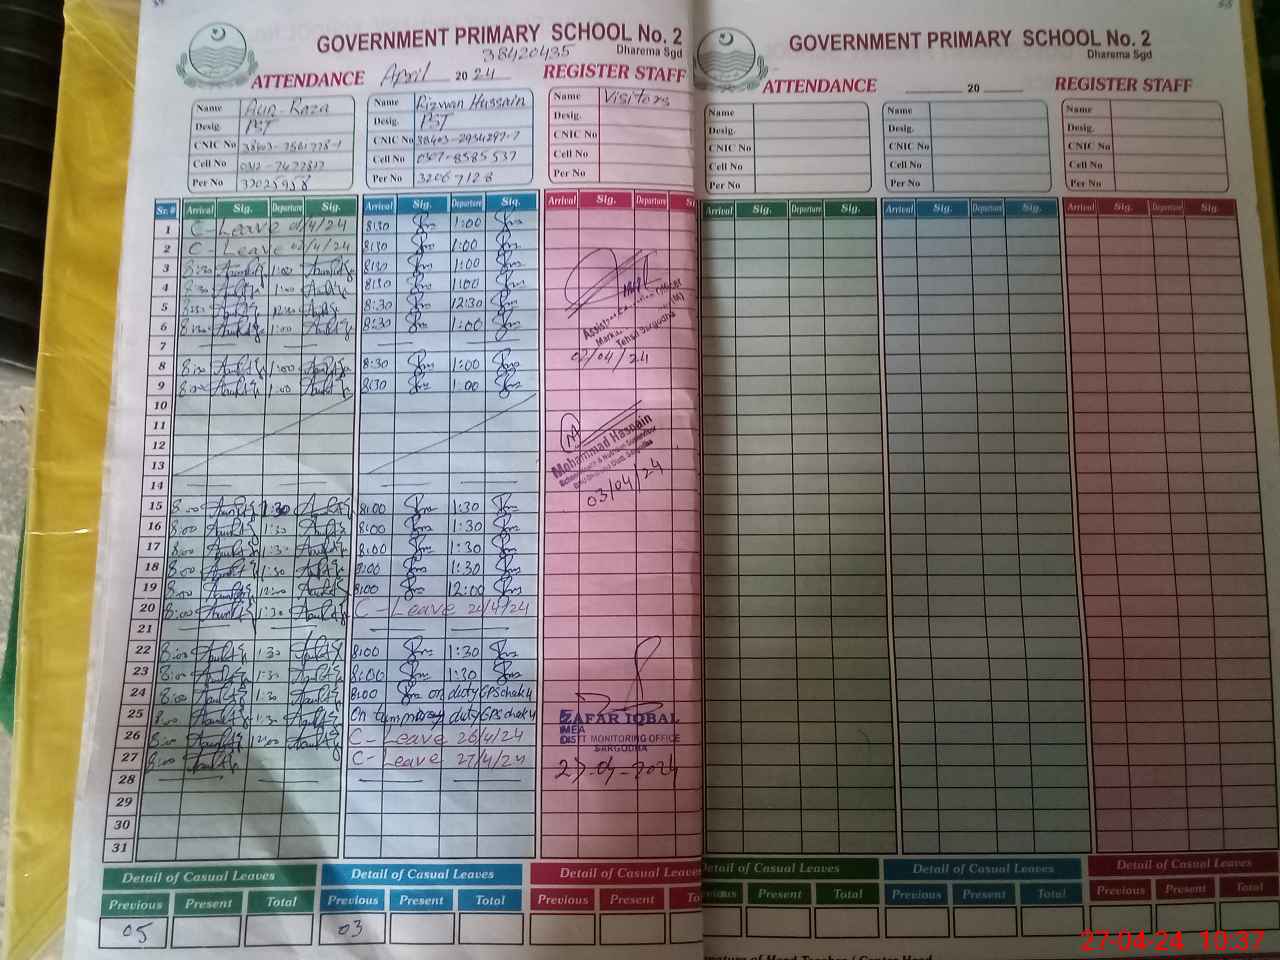 GOVERNMENT PRIMARY SCHOOL No. 2
38420435
Dharema Sgd
ATTENDANCE April 2024 REGISTER STAFF
Name Aun-Raza
Desig. PST
CNIC No
Cell No
Per No
Name Rizwan Hussain
Desig. PST
CNIC No 38403-2934297-7
Cell No 0307-8585537
Per No 32067128
Name Visitors
Desig.
CNIC No
Cell No
Per No
Sr. # Arrival Sig. Departure Sig. Arrival Sig. Departure Sig. Arrival Sig. Departure
1 C-Leave 01/4/24 8:30 1:00
2 C-Leave 02/4/24 8:30 1:00
3 8:30 1:00 8:30 1:00
4 8:30 1:00 8:30 1:00
5 8:30 12:30 8:30 12:30
6 8:30 1:00 8:30 1:00
7
8 8:30 1:00 8:30 1:00
9 1:00 8:30 1:00
10
11
12
13
14
15 8:00 1:30 8:00 1:30
16 8:00 1:30 8:00 1:30
17 8:00 1:30 8:00 1:30
18 8:00 1:30 8:00 1:30
19 8:00 12:00 8:00 12:00
20 8:00 1:30 C-Leave 20/4/24
21
22 8:00 1:30 8:00 1:30
23 8:00 1:30 8:00 1:30
24 8:00 1:30 8:00 on duty GPS chak 4
25 8:00 1:30 On duty GPS chak 4
26 8:00 12:00 C-Leave 26/4/24
27 8:00 C-Leave 27/4/24
28
29
30
31
Tehsil Sargodha
02/04/24
Mohammad Hasnain
03/04/24
ZAFAR IQBAL
MEA
DISTT MONITORING OFFICE
SARGODHA
27-04-2024
Detail of Casual Leaves Detail of Casual Leaves Detail of Casual Leaves
Previous Present Total Previous Present Total Previous Present
05 03
GOVERNMENT PRIMARY SCHOOL No. 2
Dharema Sgd
ATTENDANCE 20 REGISTER STAFF
Name
Desig.
CNIC No
Cell No
Per No
Name
Desig.
CNIC No
Cell No
Per No
Name
Desig.
CNIC No
Cell No
Per No
Arrival Sig. Departure Sig. Arrival Sig. Departure Sig. Arrival Sig. Departure Sig.
Detail of Casual Leaves Detail of Casual Leaves Detail of Casual Leaves
Present Total Previous Present Total Previous Present Total
27-04-24 10:37